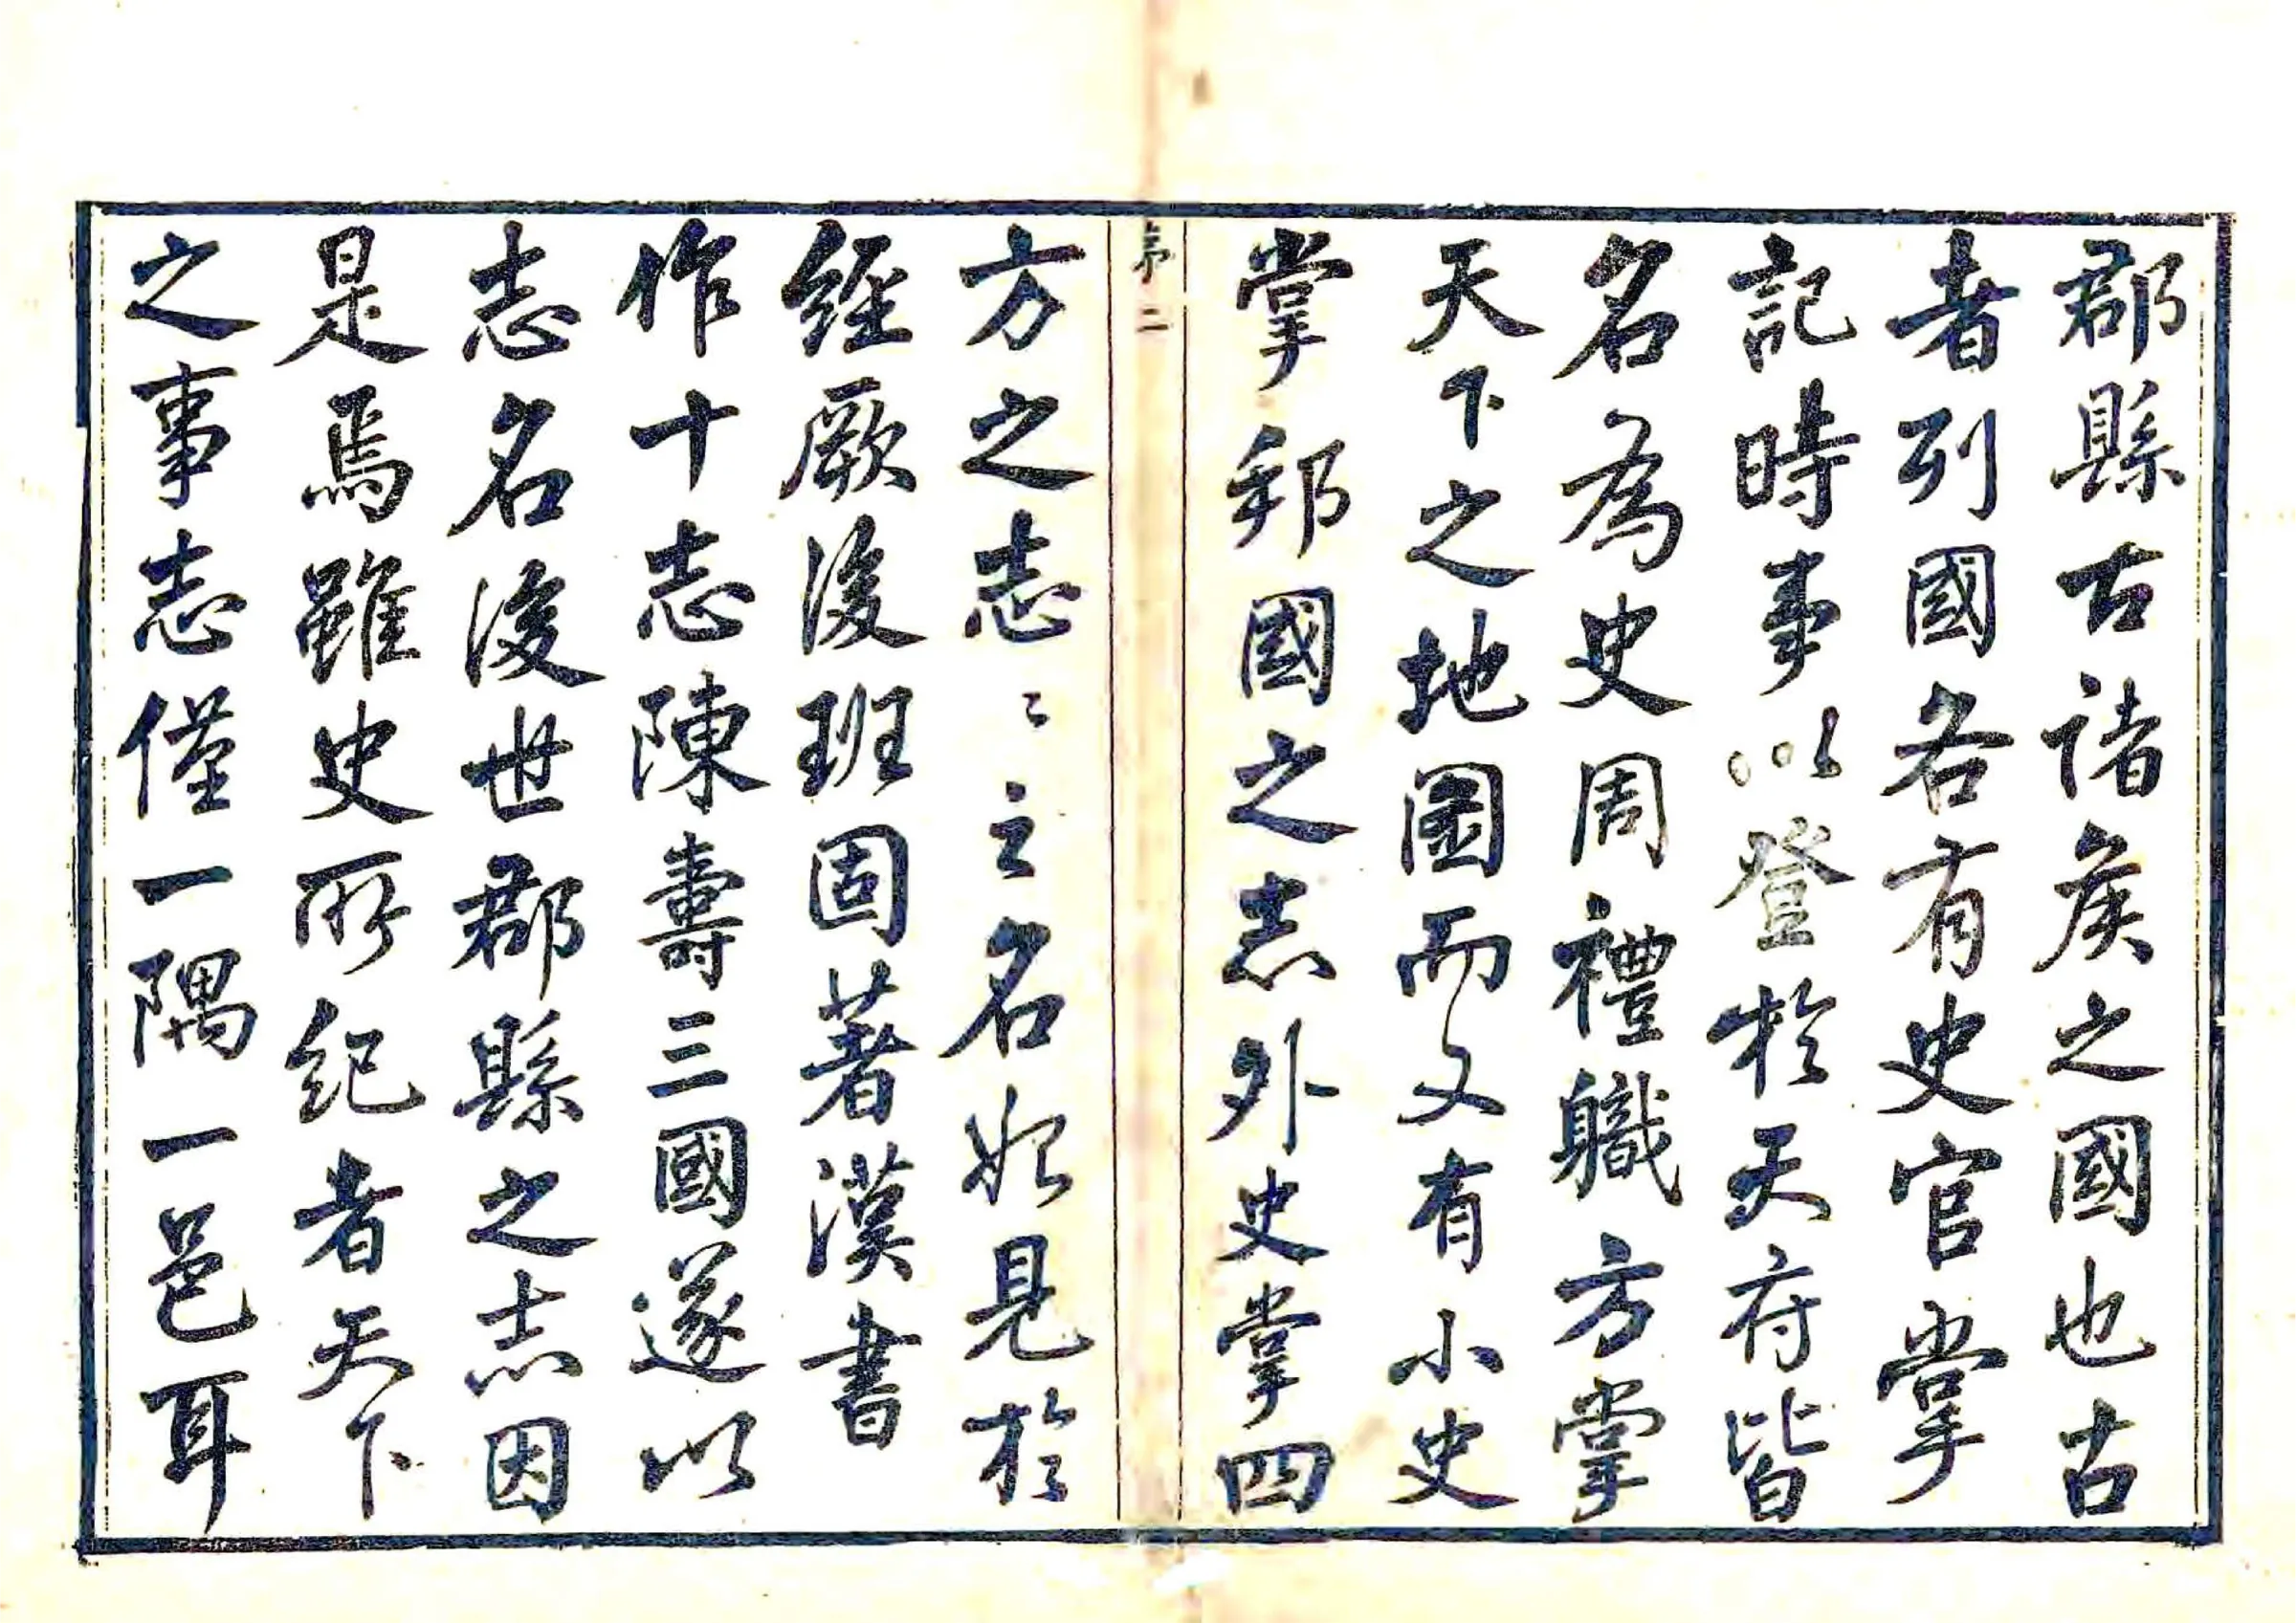 郡縣古諸矦之國也古
者列國各有史官掌
記時事以登於天府皆
名為史周禮職方掌
天下之地圖而又有小史
掌邦國之志外史掌四
序二
方之志〻之名始見於
經厥後班固著漢書
作十志陳壽三國遂以
志名後世郡縣之志因
是焉雖史所紀者天下
之事志僅一隅一邑耳